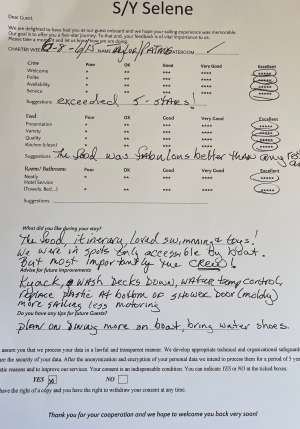 S/Y Selene
Dear Guest,
We are delighted to have had you as our guest onboard and we hope your sailing experience was memorable.
Our goal is to offer you a five-star journey. To that end, your feedback is of vital importance to us.
Please take a moment and let us know how we are doing.
CHARTER WEEK NAME
Crew Poor OK Good Very Good Excellent
Welcome * ** *** **** *****
Polite * ** *** **** *****
Availability * ** *** **** *****
Service * ** *** **** *****
Suggestions: exceeded 5-stars!
Food Poor OK Good Very Good Excellent
Presentation * ** *** **** *****
Variety * ** *** **** *****
Quality * ** *** **** *****
Kitchen * ** *** **** *****
Suggestions The food was fabulous better than any
Rooms/ Bathrooms Poor OK Good Very Good Excellent
Neatly * ** *** **** *****
Hotel Service * ** *** **** *****
(Towels, Bed...)
Suggestions
What did you like during your stay?
The food, itinerary, loved swimming & toys!
We were in spots only accessible by boat.
But most importantly the CREW!
Advice for future improvements
Kayak, WASH DECKS DOWN, water temp control,
replace plastic at bottom of shower door (moldy)
more sailing less motoring
Do you have any tips for future Guests?
plan on living more on boat, bring water shoes.
assure you that we process your data in a lawful and transparent manner. We develop appropriate technical and organisational
the security of your data. After the anonymization and encryption of your personal data we intend to process them for a period of 5
reasons and to improve our services. Your consent is an indispensable condition. You can indicate YES or NO at the ticket boxes.
YES NO
have the right of a copy and you have the right to withdraw your consent at any time.
Thank you for your cooperation and we hope to welcome you back very soon!